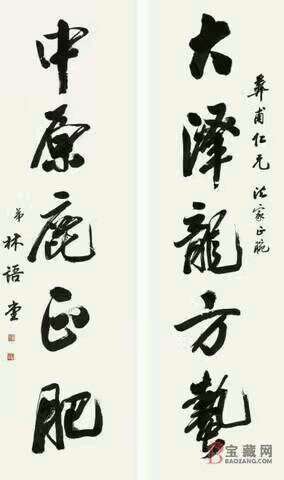 大泽龍方蟄
彝甫仁兄法家正腕
中原鹿正肥
弟林語堂
宝藏网
BAOZANG.COM